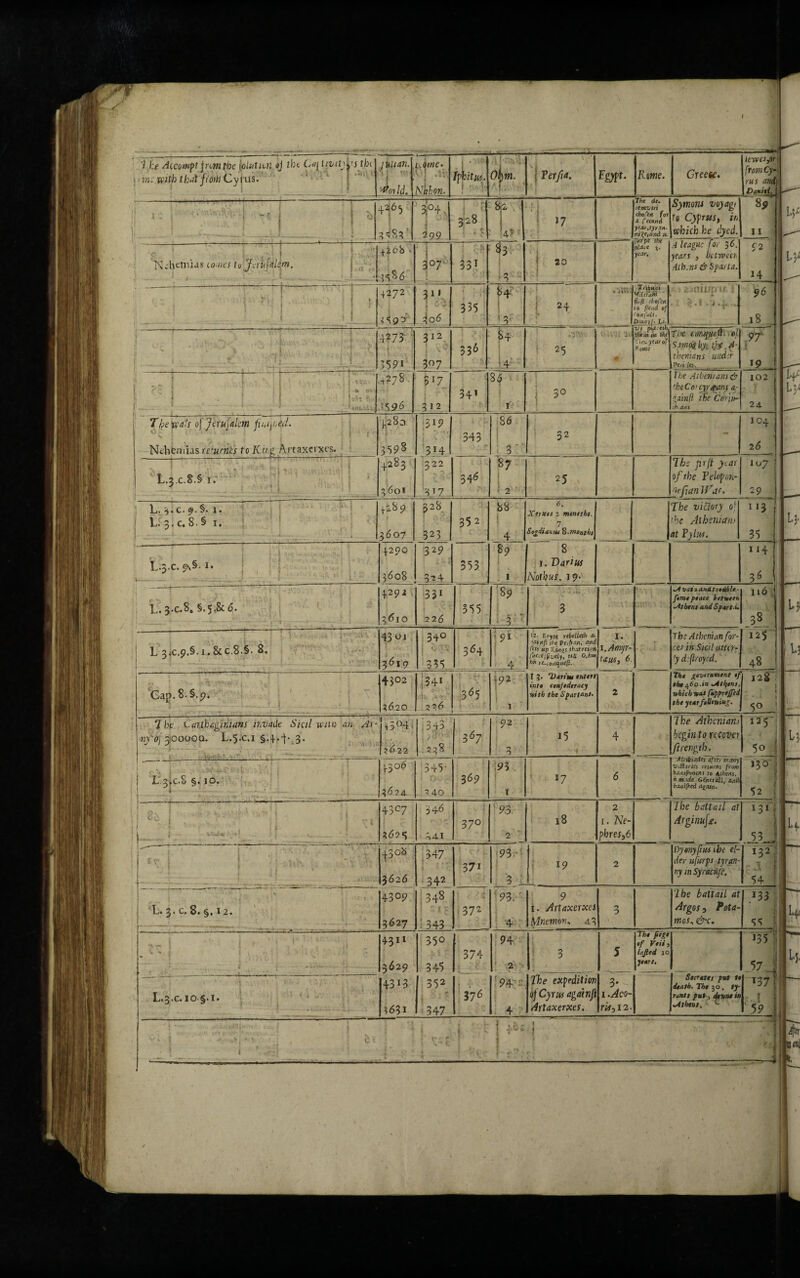 The Accompt from the solution of the Captivity, is the
in: with that from Cyrus.
Julian.
World.
Rome.
Nabon.
Iphitus.
Olym.
Persia.
Egypt.
Rome.
Greece.
Iewes, or
from Cyrus and
Daniel.
4265
3583
304
299
328
82
4
17
Symons voyage
to Cyprus, in
which he dyed.
89
11
Nehemias comes to Jerusalem.
4268
3586
307
331
83
3
20
A league for 36.
years, between
Ath.ns & Sparta.
92
14
4272
3590
311
306
335
84
3
24
96
18
4273
3591
312
307
336
84
4
25
The conquest of
Samos by the A-
thenians under
Pericles.
97
19
4278
3596
317
312
341
86
1
30
The Athenians &
the Corcyraeans a-
gainst the Corin-
thians
102
24
The wals of Jerusalem finished.
Nehemias returnes to King Artaxerxes.
4280
3598
319
314
343
86
3
32
104
26
L.3.c.8.§ 1.
4283
3601
322
317
346
87
2
25
The first year
of the Pelopon-
nesian War.
107
29
L. 3. c. 9. §. 1.
L. 3. c. 8. § 1.
4289
3607
328
323
352
88
4
6.
Xerxes 2 moneths.
7
Sogdianus 8. moneths
The victory of
the Athenians
at Pylus.
113
35
L.3.c. 9. §. 1.
4290
3608
329
324
353
89
1
8
1. Darius
Nothus. 19.
114
36
L. 3.c.8. §.5.& 6.
4292
3610
331
226
355
89
3
3
Athens and Sparta.
116
38
L 3.c.9.§.1. & c.8.§. 8.
4301
3619
340
335
364
91
4
1.
1.Amyr-
taus, 6
The Athenian for-
ces in Sicil utter-
ly destroyed.
125
48
Gap. 8. §.9.
4302
2620
341
226
365
92
1
13. Darius enters
into confederacy
with the Spartans.
2
The government of
the 400.in Athens,
which was suppressed
the year following.
128
50
The Carthaginians invade Sicil with an Ar-
my of 300000. L.5.c.1 §.4.†.3.
4304
2622
343
238
367
92
3
15
4
The Athenians
begin to recover
strength.
125
50
L 3.c.8 §. 10.
4306
3624
345
340
369
93
1
17
6
Alcibiades after many
victories returns from
banishment to Athens,
is made Generall, and
banished again.
130
52
4307
3625
346
341
370
93
2
18
2
1. Ne-
phres,6
The battail at
Arginusæ.
131
53
4308
3626
347
342
371
93
3
19
2
Dyonysius the el-
der usurps tyran-
ny in Syracuse.
132
54
L. 3. c. 8. §. 12.
4309
3627
348
343
372
93
4
9
1. Artaxerxes
Mnemon. 43
3
The battail at
Argos, Pota-
mos, &c.
133
55
4311
3629
350
345
374
94
2
3
5
The siege
of Veii,
lasted 10
years.
135
57
L.3.c.10 §.1.
4313
3631
352
347
376
94
4
The expedition
of Cyrus against
Artaxerxes.
3.
1.Aco-
ris,12.
Socrates put to
death. The 30. ty-
rants put down in
Athens.
137
59